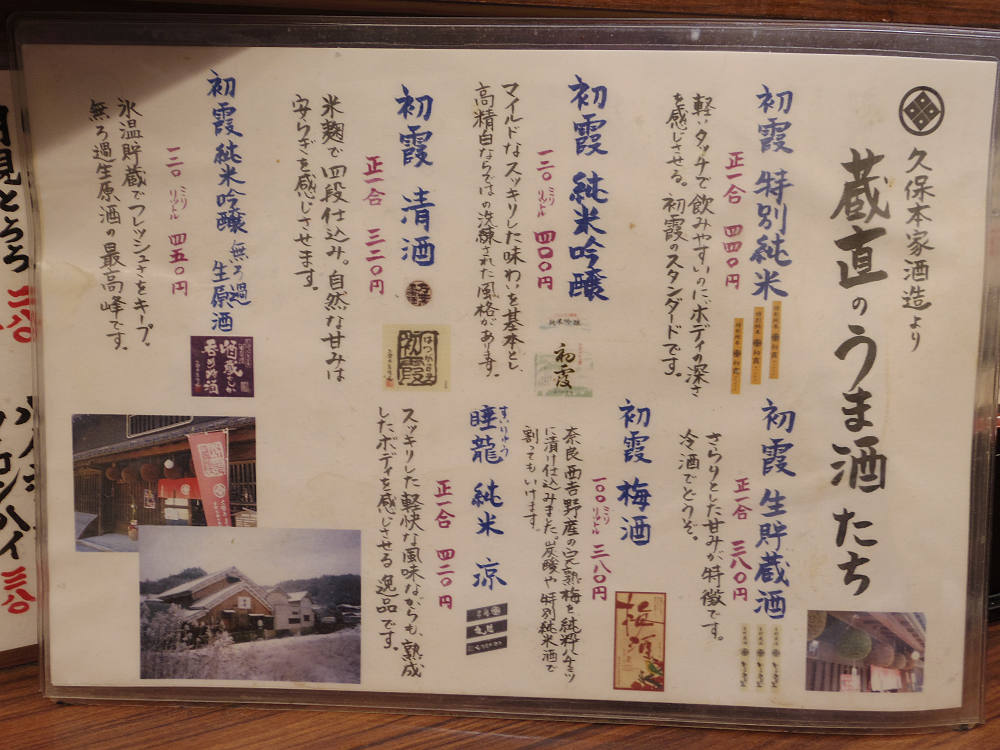 久保本家酒造より
蔵直のうま酒たち
初霞 特別純米
正一合 四四〇円
軽いタッチで飲みやすいのにボディの深さ
を感じさせる。初霞のスタンダードです。
初霞 生貯蔵酒
正一合 三八〇円
さらりとした甘みが特徴です。
冷酒でどうぞ。
初霞 純米吟醸
一二〇ミリリットル 四〇〇円
マイルドなスッキリした味わいを基本とし、
高精白ならではの洗練された風格があります。
純米吟醸
初霞
初霞 梅酒
一〇〇ミリリットル 三八〇円
奈良西吉野産の完熟梅を純粋ハチミツ
に漬け仕込みました。炭酸や特別純米酒で
割ってもいけます。
初霞 清酒
正一合 三二〇円
米麹で四段仕込み。自然な甘みは
安らぎを感じさせます。
はつがすみ
初霞
睡龍 純米 涼
すいりゅう
正一合 四二〇円
スッキリした軽快な風味ながらも、熟成
したボディを感じさせる逸品です。
初霞 純米吟醸 無ろ過生原酒
一二〇ミリリットル 四五〇円
氷温貯蔵でフレッシュさをキープ。
無ろ過生原酒の最高峰です。
月見とろろ 二八〇